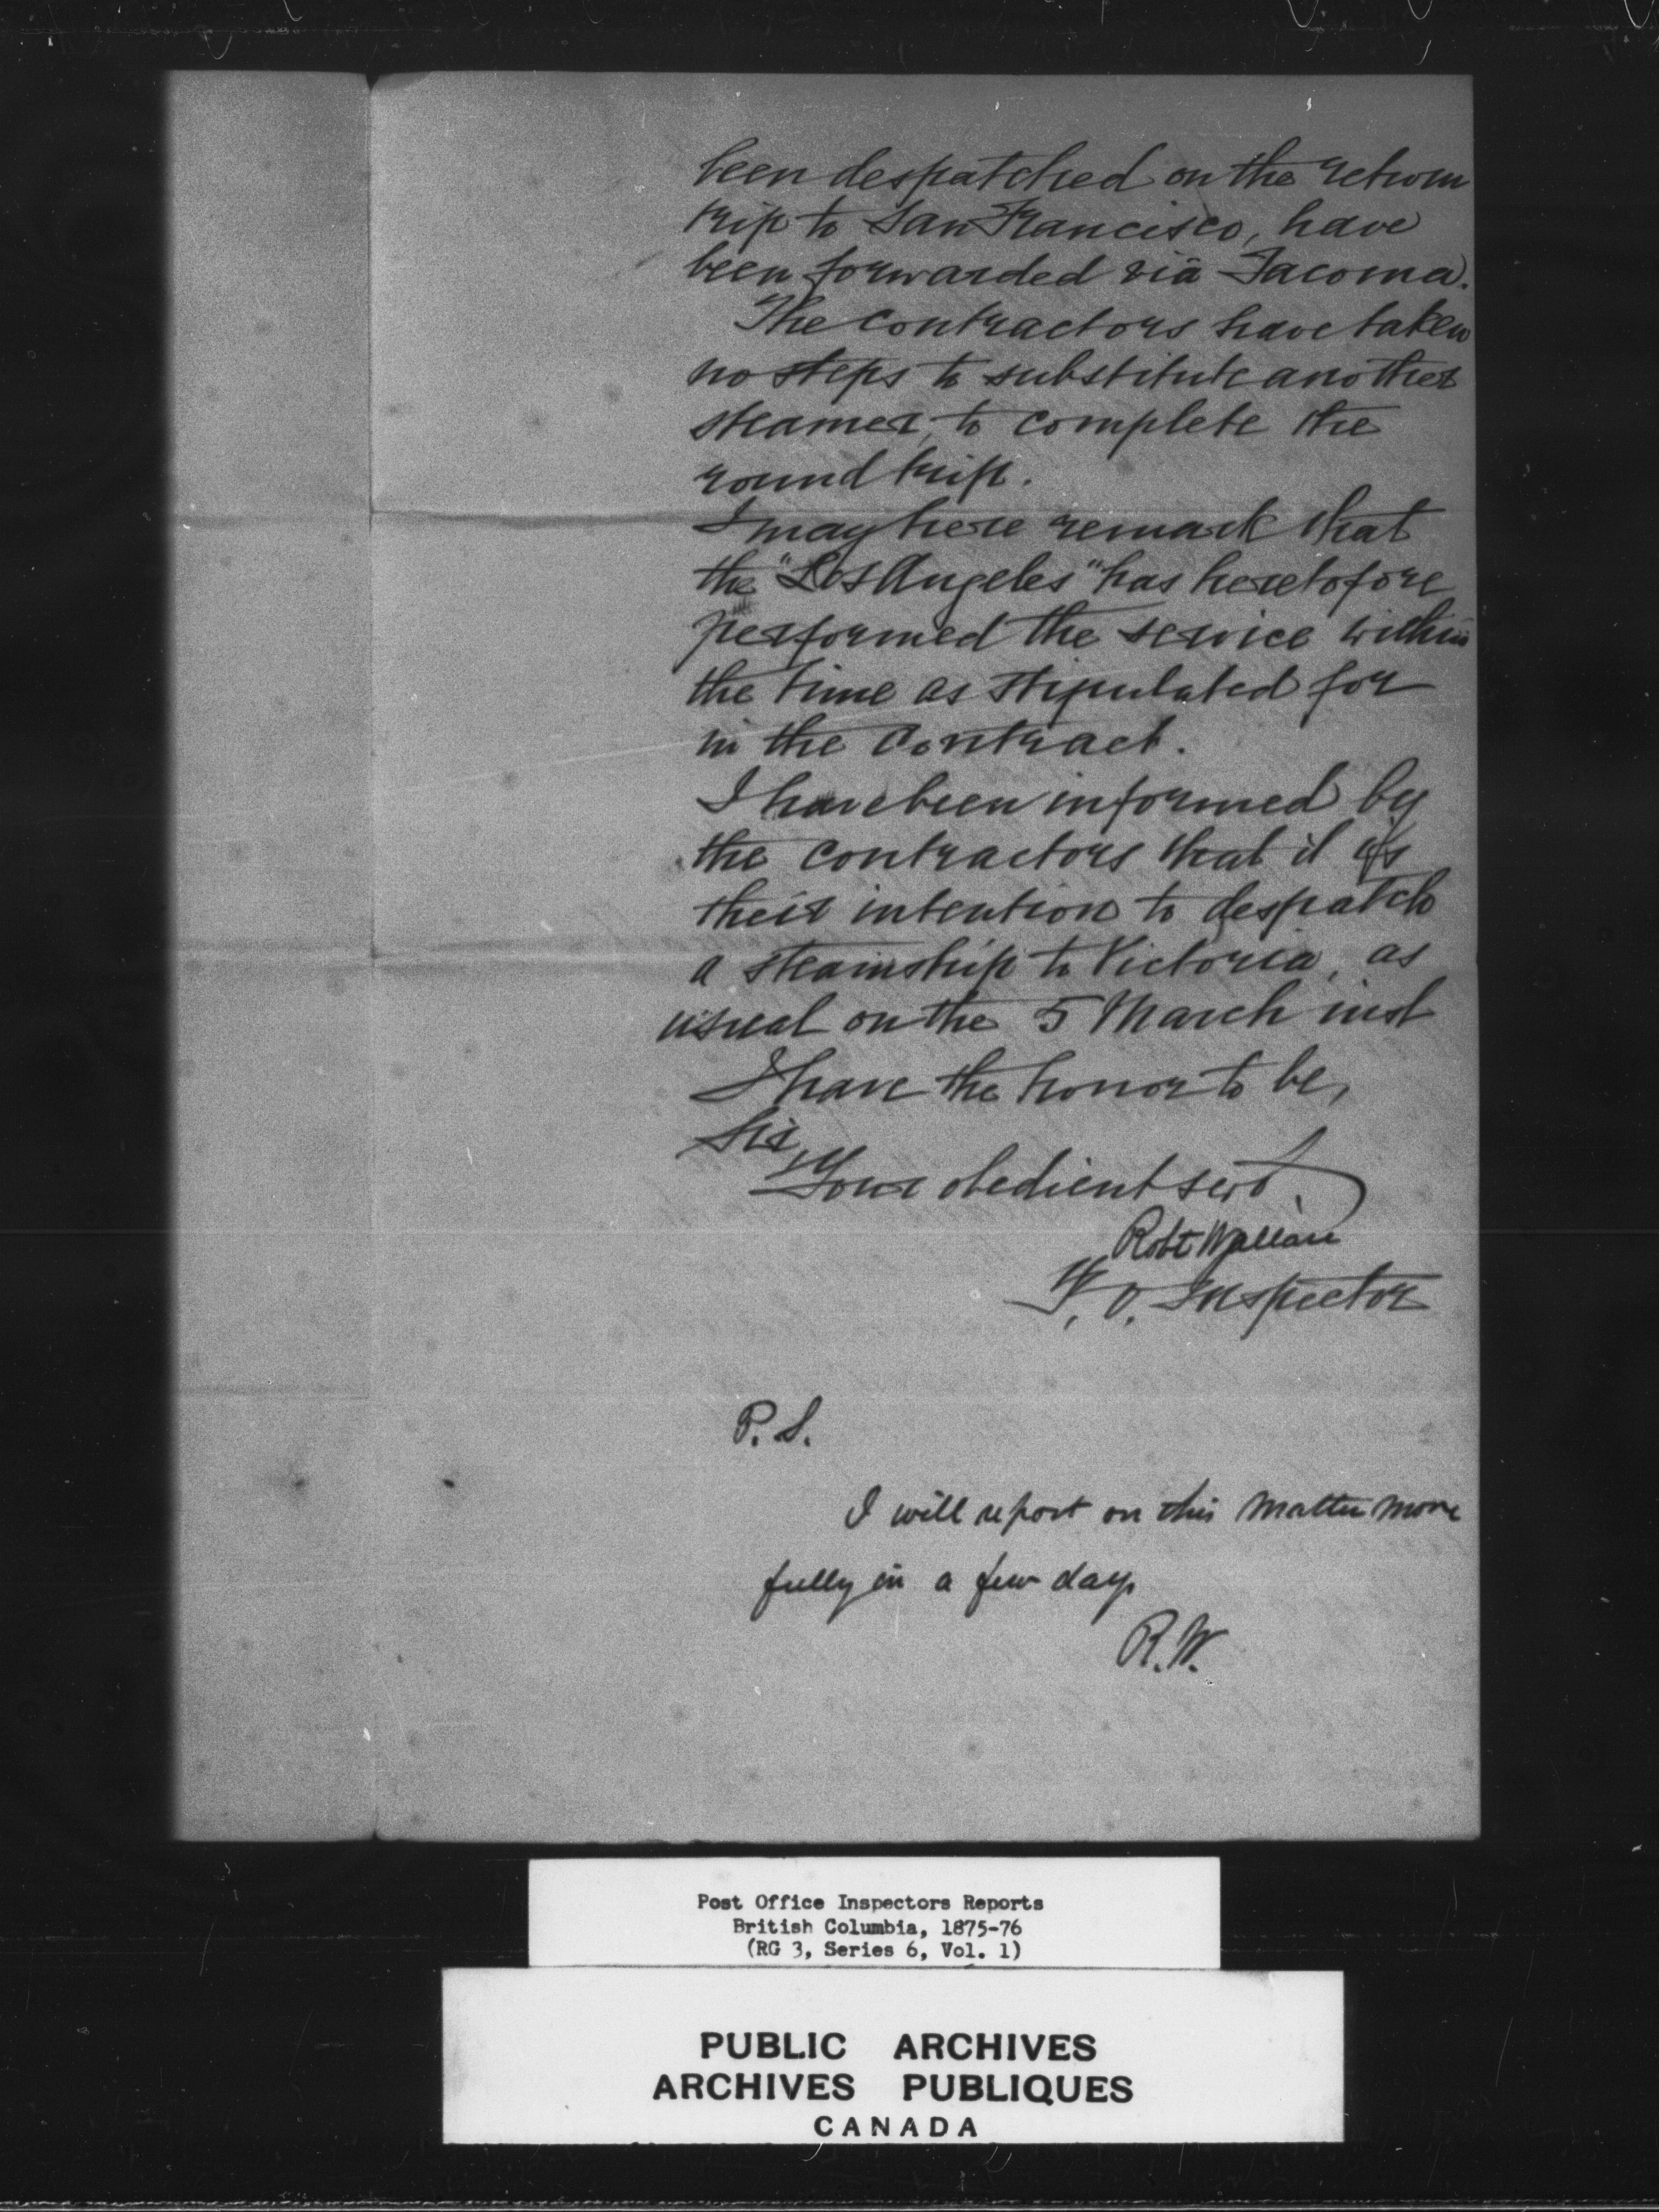 been despatched on the return
trip to San Francisco, have
been forwarded viâ Tacoma.
The contractors have taken
no steps to substitute another
steamer, to complete the
round trip.
I may here remark that
the "Los Angeles" has heretofore
performed the service within
the time as stipulated for
in the Contract.
I have been informed by
the contractors that it is
their intention to despatch
a steamship to Victoria, as
usual on the 5 March inst
I have the honor to be,
Sir,
Your obedient servt.
Robt Wallace
P. O. Inspector
P. S.
I will report on this matter more
fully in a few days
R. W.
Post Office Inspectors Reports
British Columbia, 1875-76
(RG 3, Series 6, Vol. 1)
PUBLIC ARCHIVES
ARCHIVES PUBLIQUES
CANADA